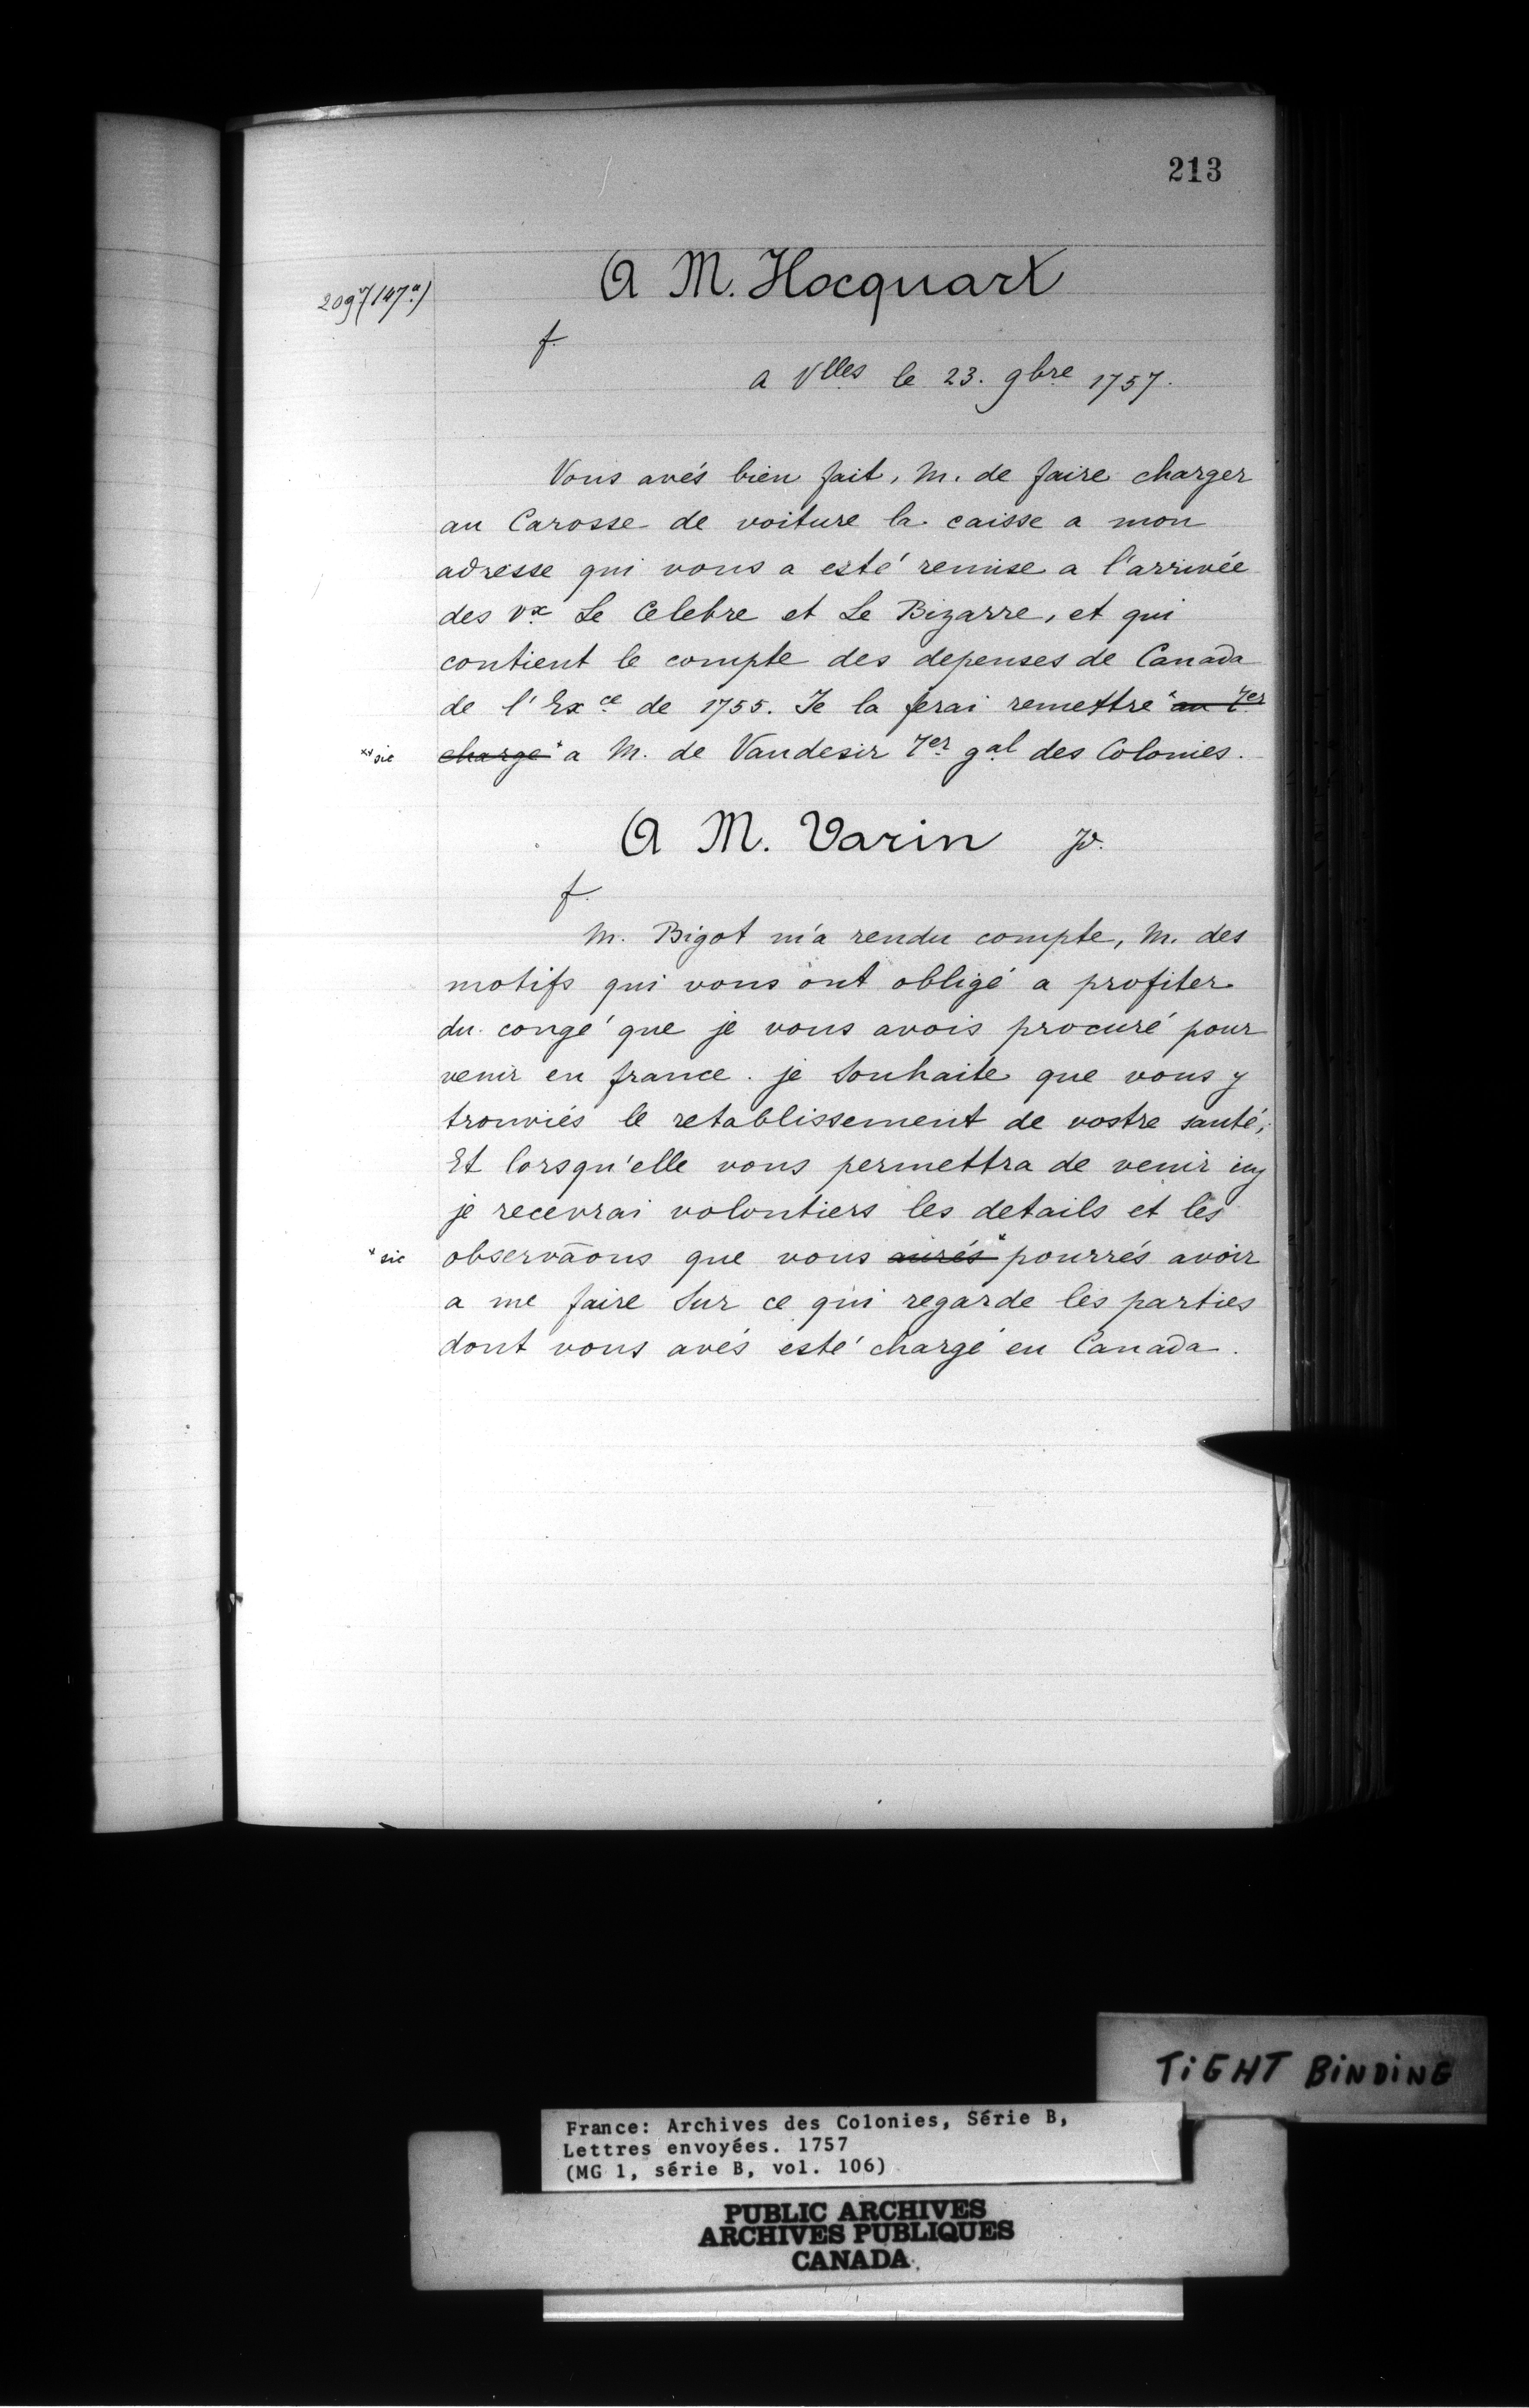 213
A M. Hocquart
f.
a Vlles le 23. 9bre 1757.
Vous avés bien fait, M. de faire charger
au Carosse de voiture la caisse a mon
adresse qui vous a esté remise a l'arrivée
des vx Le Celebre et Le Bizarre, et qui
contient le compte des depenses de Canada
de l'Exce de 1755. Je la ferai remettre * au Ter
** sic charge * a M. de Vaudesir Ter gal des Colonies.
A M. Varin
f.
M. Bigot m'a rendu compte, M. des
motifs qui vous ont obligé a profiter
du congé que je vous avois procuré pour
venir en france. je souhaite que vous y
trouviés le retablissement de vostre santé;
Et lorsqu'elle vous permettra de venir icy
je recevrai volontiers les details et les
* sic observãons que vous aurés * pourrés avoir
a me faire sur ce qui regarde les parties
dont vous avés esté chargé en Canada.
TiGHT BiNDiNG
France: Archives des Colonies, Série B,
Lettres envoyées. 1757
(MG 1, série B, vol. 106)
PUBLIC ARCHIVES
ARCHIVES PUBLIQUES
CANADA